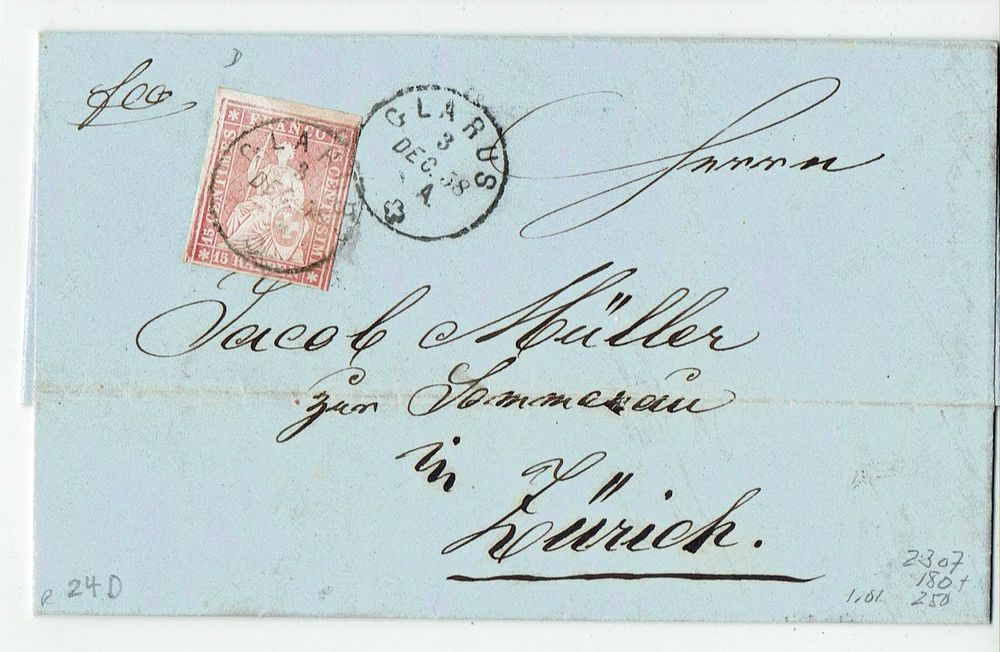 D
fco
GLARUS
3
DEC. 58
A
3
FRANCO
15 RAPPEN
GLARUS
3
DEC.
Herrn
Jacob Müller
zur Sommerau
in
Zürich.
24 D
2307
180+
1,01 250